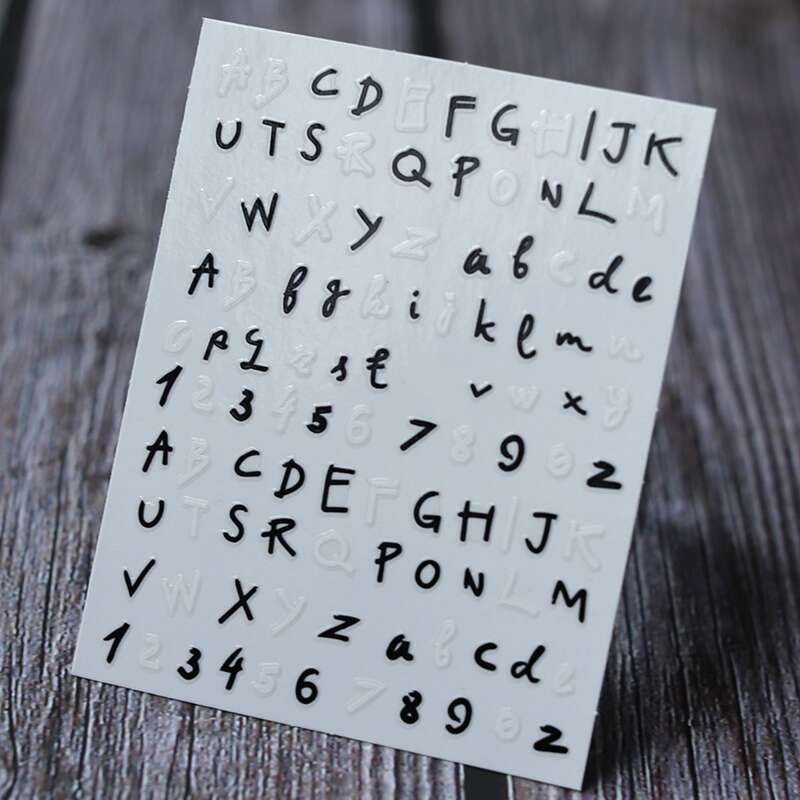 A B C D E F G H I J K
U T S R Q P O N L M
V W X Y Z a b c d e
A B f g h i j k l m n
o p q r s t v w x y
1 2 3 4 5 6 7 8 9 0 2
A B C D E F G H I J K
U T S R Q P O N L M
V W X Y Z a b c d e
1 2 3 4 5 6 7 8 9 0 2